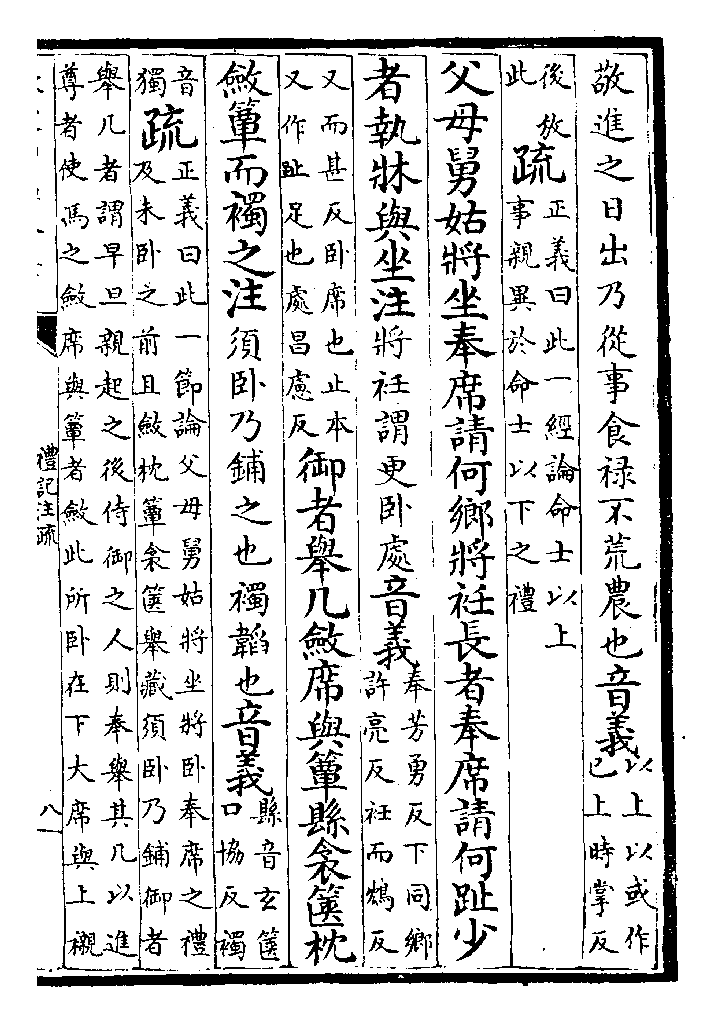 敬進之日出乃從事食禄不荒農也音義以上以或作已上時掌反
後放此疏正義曰此一經論命士以上事親異於命士以下之禮
父母舅姑將坐奉席請何鄉將衽長者奉席請何趾少
者執牀與坐注將衽謂更卧處音義奉芳勇反下同鄉許亮反衽而鴆反
又而甚反卧席也止本又作趾足也處昌慮反御者舉几斂席與簟縣衾篋枕
斂簟而襡之注須卧乃鋪之也襡韜也音義縣音玄篋口協反襡
音獨疏正義曰此一節論父母舅姑將坐將卧奉席之禮及未卧之前且斂枕簟衾篋舉藏須卧乃鋪御者
舉几者謂早旦親起之後侍御之人則奉舉其几以進尊者使馮之斂席與簟者斂此所卧在下大席與上襯
禮記注疏
八一